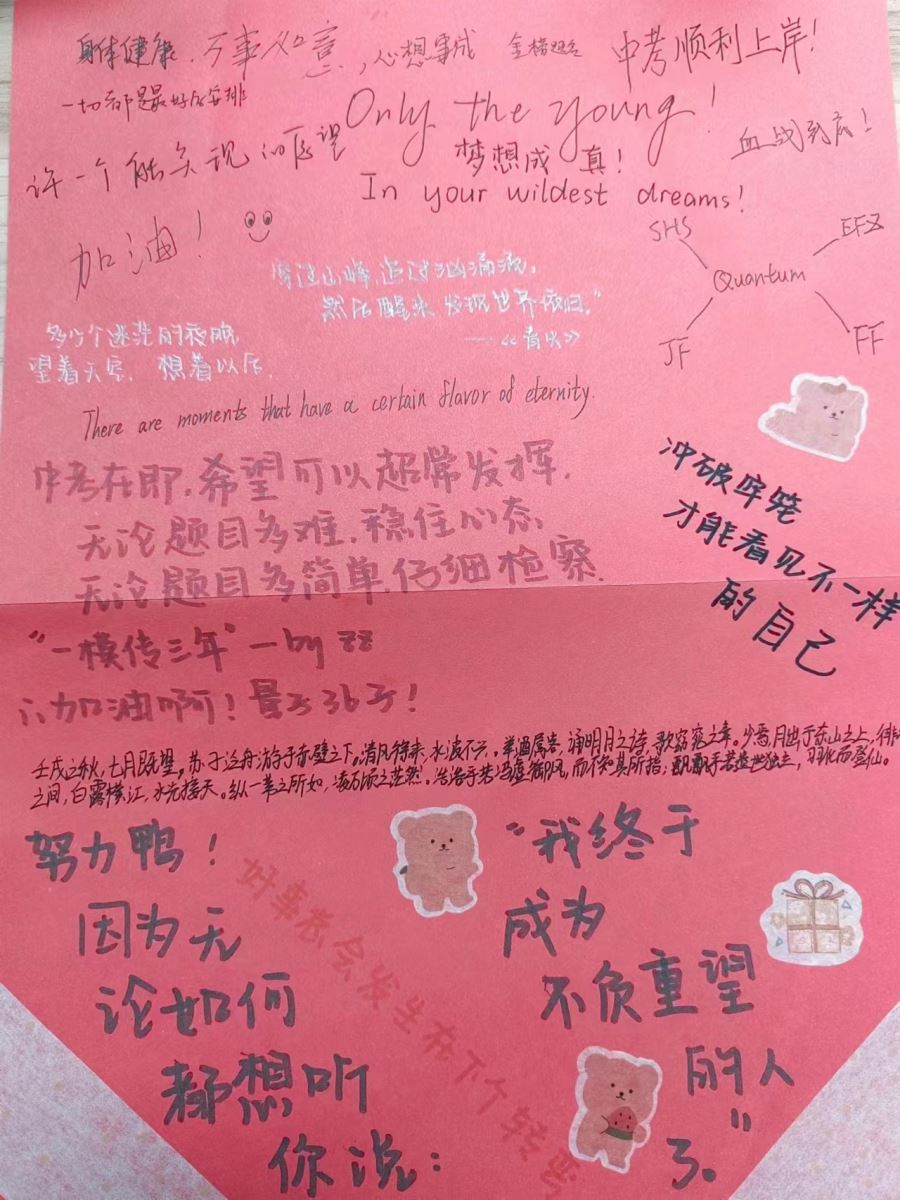 身体健康，万事如意，心想事成 金榜题名 中考顺利上岸！
一切都是最好的安排
Only the young！
许一个能实现的愿望
梦想成真！
血战到底！
In your wildest dreams！
加油！
SHS
EFZ
Quantum
JF
FF
穿过山峰，追过汹涌流，
然后醒来 发现世界依旧，"
——《看火》
多少个迷茫的夜晚
望着天空，想着以后，
There are moments that have a certain flavor of eternity.
中考在即，希望可以超常发挥，
无论题目多难，稳住心态，
无论题目多简单，仔细检察.
冲破牢笼
才能看见不一样
的自己
"一模传三年" —by zz
六加油啊！最后36天！
壬戌之秋，七月既望，苏子泛舟游于赤壁之下。清风徐来，水波不兴。举酒属客，诵明月之诗，歌窈窕之章。少焉，月出于东山之上，徘
之间，白露横江，水光接天。纵一苇之所如，凌万顷之茫然。浩浩乎若冯虚御风，而不知其所指；飘飘乎若遗世独立，羽化而登仙。
努力鸭！
因为无
论如何
都想听
你说：
"我终于
成为
不负重望
的人
了。"
好事总会发生在下个转弯